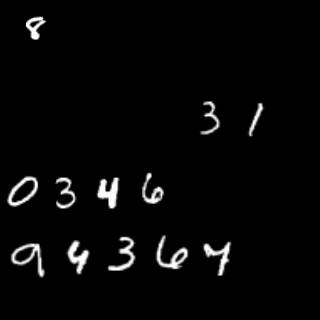 8
3 1
0 3 4 6
9 4 3 6 7